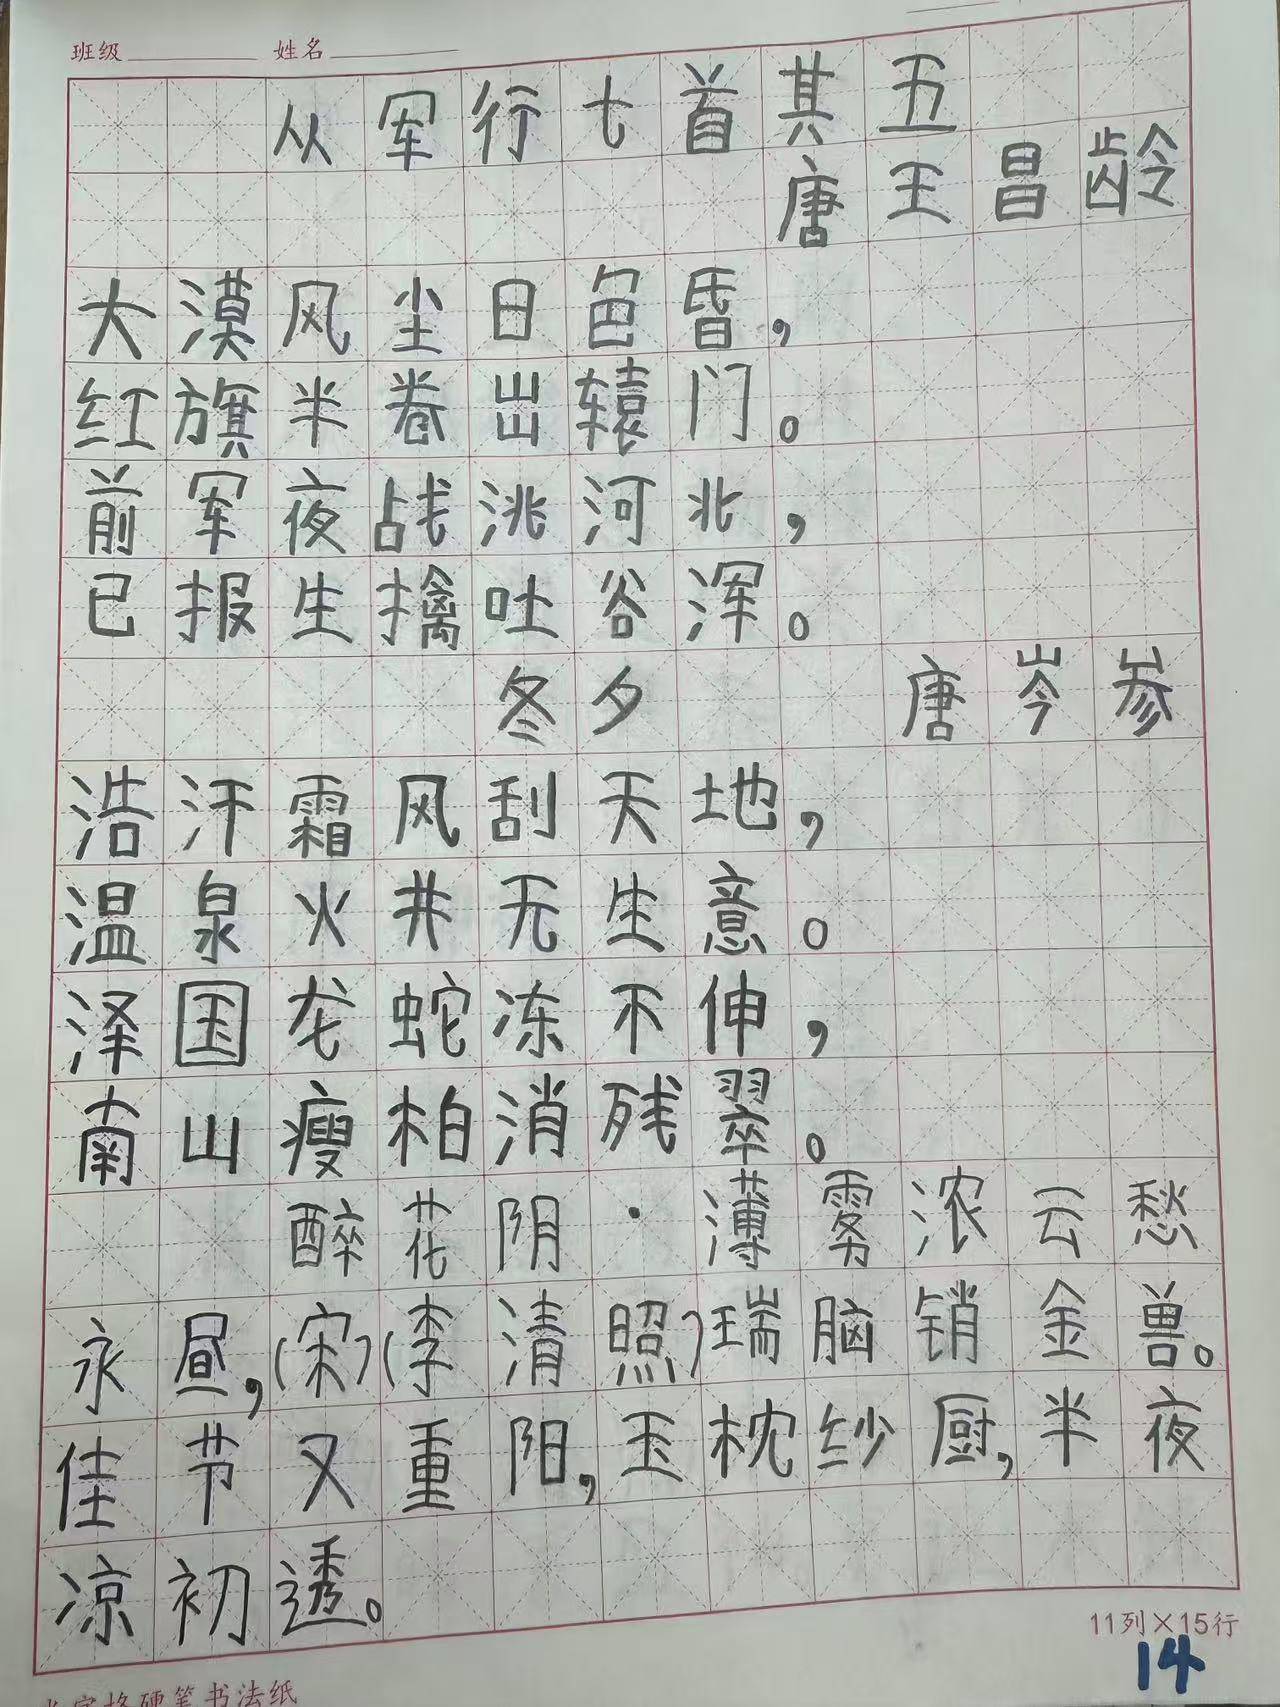 班级 姓名
从军行七首其五
唐王昌龄
大漠风尘日色昏，
红旗半卷出辕门。
前军夜战洮河北，
已报生擒吐谷浑。
冬夕 唐岑参
浩汗霜风刮天地，
温泉火井无生意。
泽国龙蛇冻不伸，
南山瘦柏消残翠。
醉花阴·薄雾浓云愁
永昼，（宋）（李清照）瑞脑销金兽。
佳节又重阳，玉枕纱厨，半夜
凉初透。
11列×15行
14
硬笔书法纸